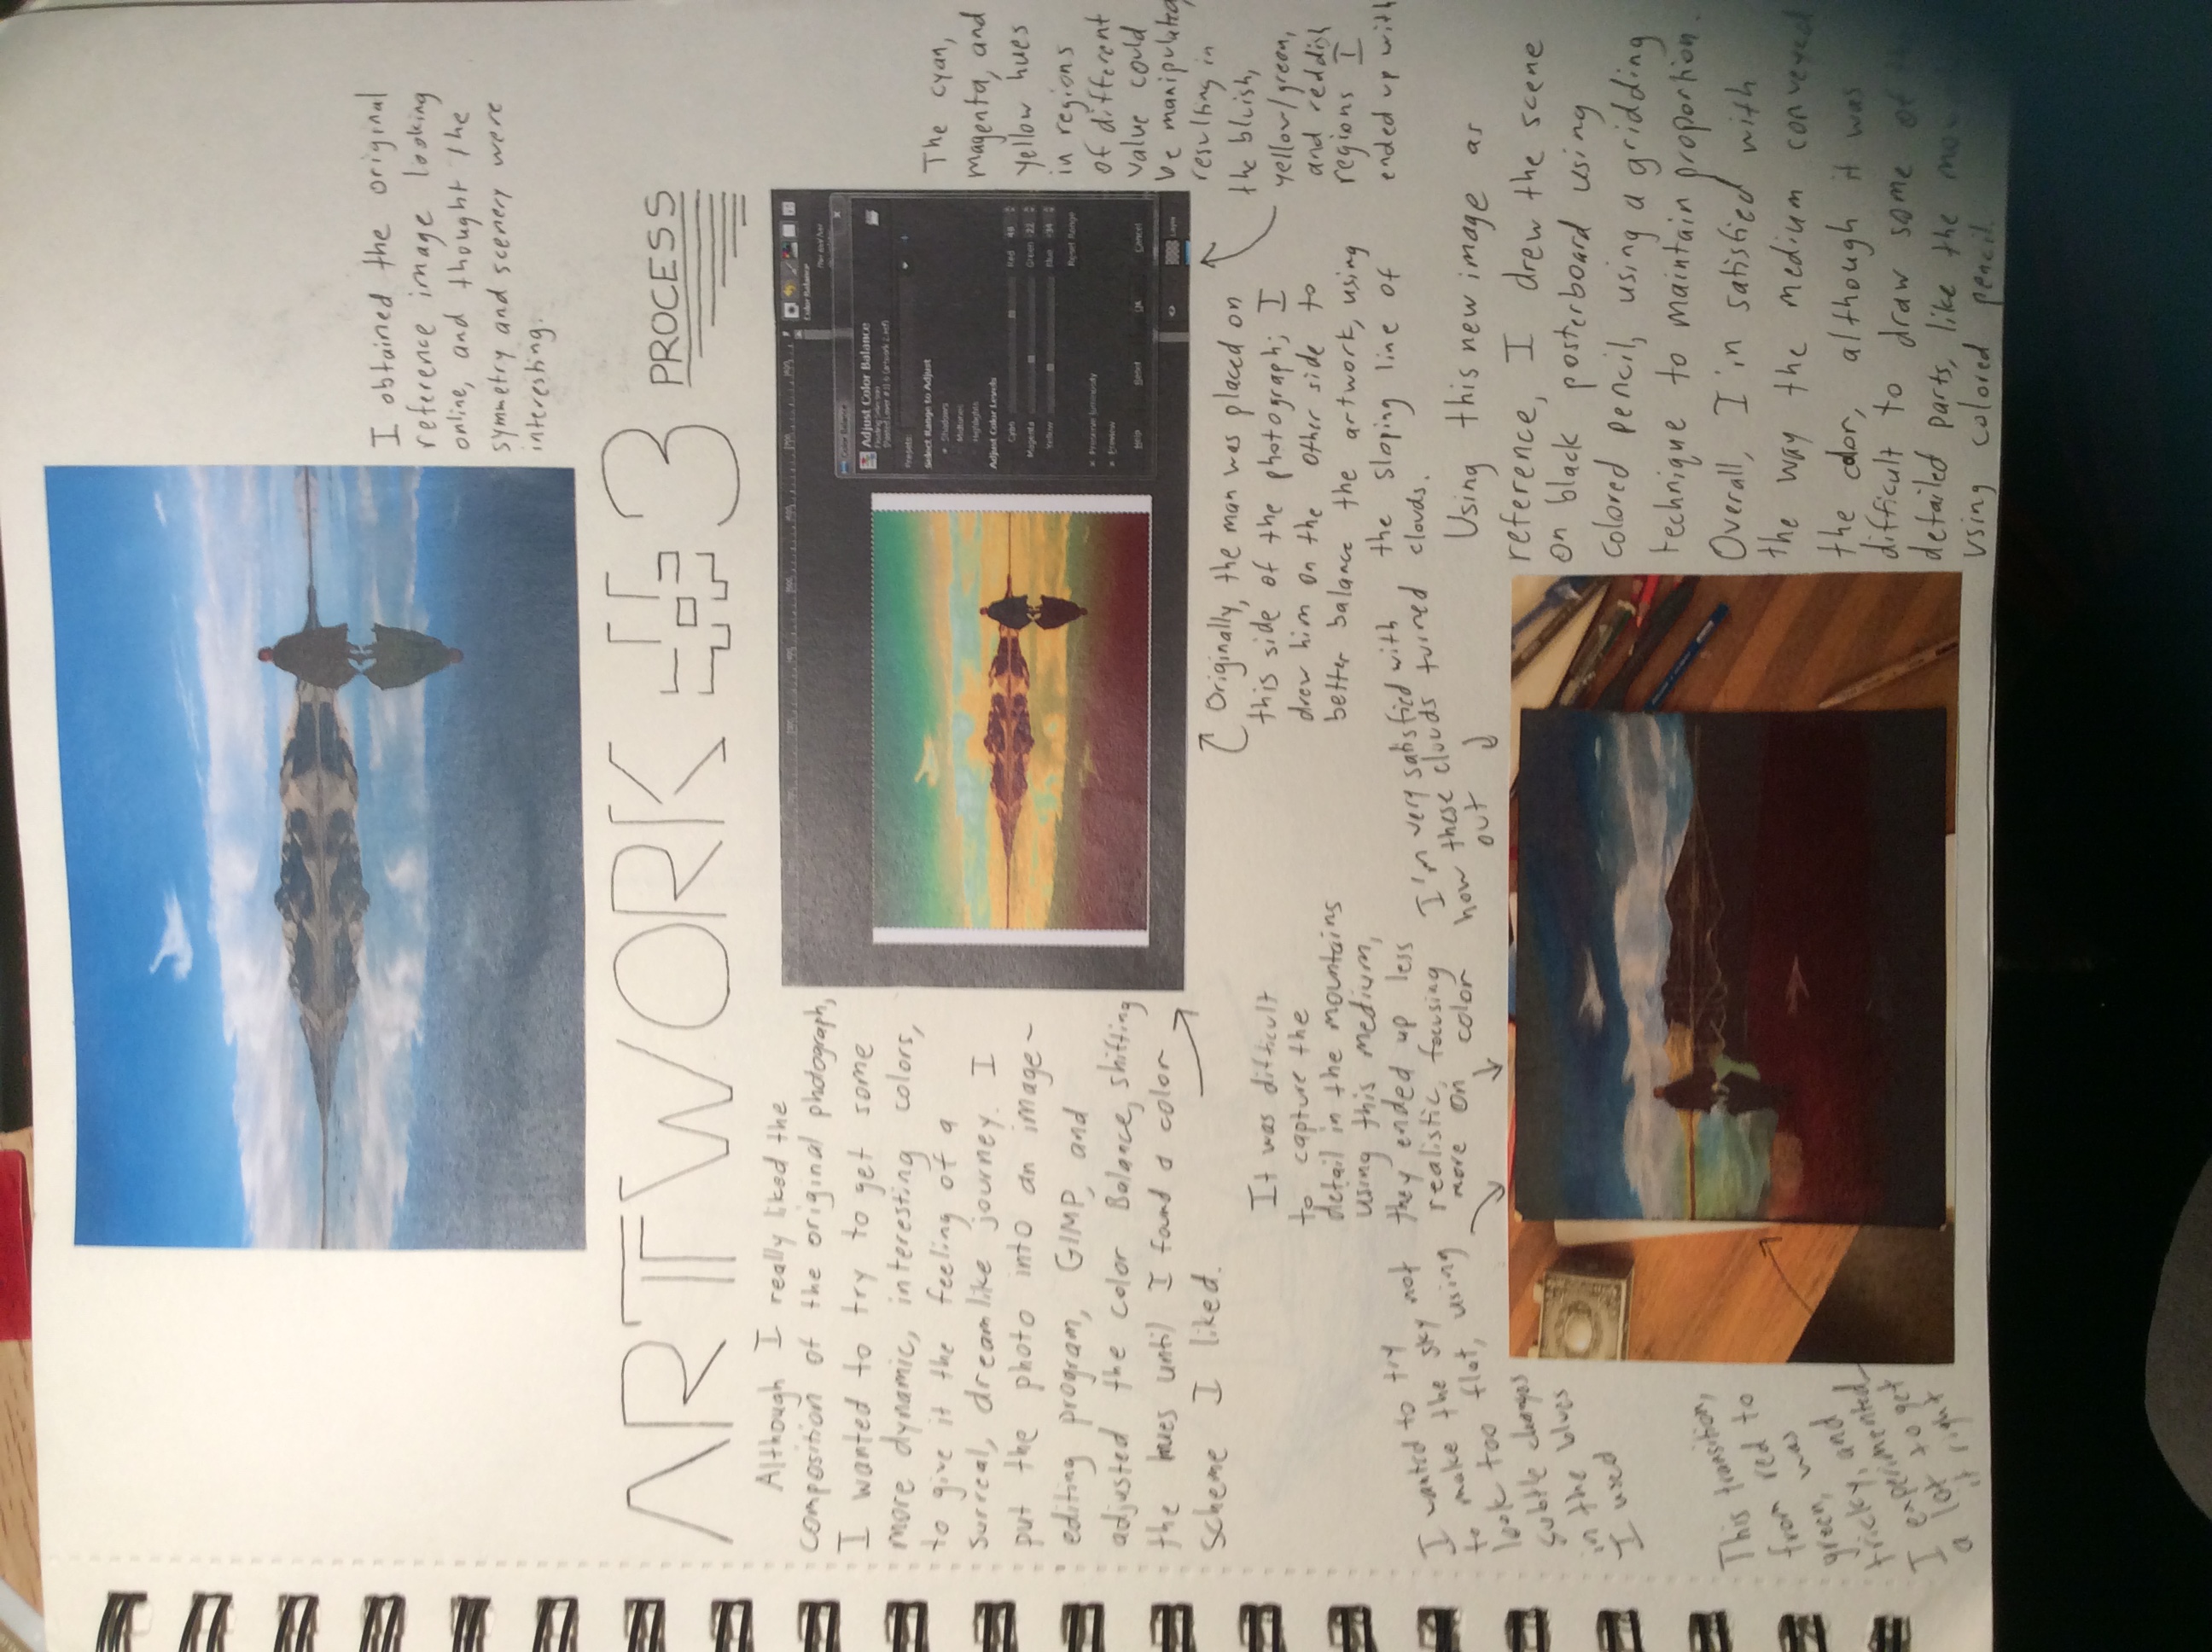 I obtained the original
reference image looking
online, and thought the
symmetry and scenery were
interesting.
ARTWORK #3
PROCESS
Although I really liked the
composition of the original photograph,
I wanted to try to get some
more dynamic, interesting colors,
to give it the feeling of a
surreal, dreamlike journey. I
put the photo into an image-
editing program, GIMP, and
adjusted the Color Balance, shifting
the hues until I found a color
scheme I liked.
Adjust Color Balance
Presets:
Select Range to Adjust
Shadows
Midtones
Highlights
Adjust Color Levels
Cyan Red 48
Magenta Green -22
Yellow Blue -34
Reset Range
Preserve luminosity
Preview
Help Reset OK Cancel
The cyan,
magenta, and
yellow hues
in regions
of different
value could
be manipulated,
resulting in
the bluish,
yellow/green,
and reddish
regions I
ended up with
Originally, the man was placed on
this side of the photograph; I
drew him on the other side to
better balance the artwork, using
the sloping line of
clouds.
It was difficult
to capture the
detail in the mountains
using this medium,
they ended up less
realistic, focusing
more on color
I'm very satisfied with
how these clouds turned
out
I wanted to try
to make the sky not
look too flat, using
subtle changes
in the blues
I used
This transition,
from red to
green, was
tricky, and
I experimented
a lot to get
it right
Using this new image as
reference, I drew the scene
on black posterboard using
colored pencil, using a gridding
technique to maintain proportion.
Overall, I'm satisfied with
the way the medium conveyed
the color, although it was
difficult to draw some of the
detailed parts, like the
using colored pencil.